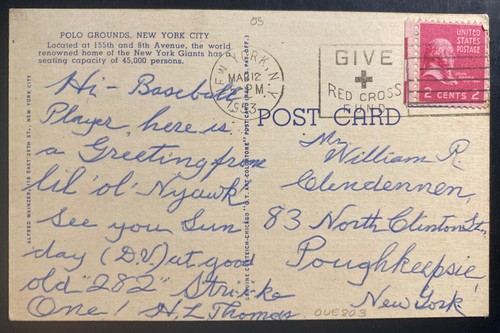 POLO GROUNDS, NEW YORK CITY
Located at 155th and 8th Avenue, the world
renowned home of the New York Giants has a
seating capacity of 45,000 persons.
05
NEW YORK, N.Y.
MAR 12
PM
1953
GIVE
RED CROSS
FUND
UNITED
STATES
POSTAGE
2 CENTS 2
POST CARD
Hi - Baseball
Player, here is
a Greeting from
lil' ol' Nyawk
See you Sun
day (D.V.) at good
old "282" Strike
One! H.L. Thomas
Mr.
William R.
Clendennen,
83 North Clinton St.,
Poughkeepsie
New York
OUE803
ALFRED MAINZER, 118 EAST 28TH ST., NEW YORK CITY
GENUINE CURTEICH-CHICAGO "C.T. ART-COLORTONE" POST CARD (REG. U.S. PAT. OFF.)